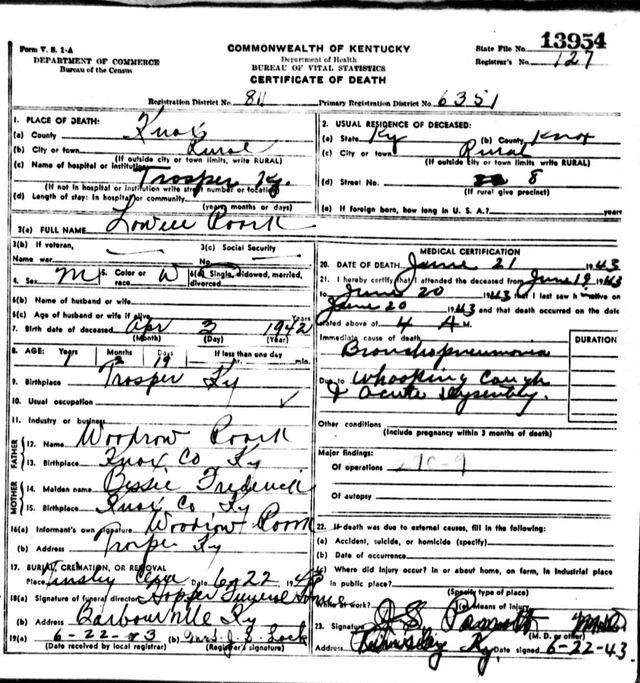 Form V. S. 1-A
DEPARTMENT OF COMMERCE
Bureau of the Census
COMMONWEALTH OF KENTUCKY
Department of Health
BUREAU OF VITAL STATISTICS
CERTIFICATE OF DEATH
State File No. 13954
Registrar's No. 127
Registration District No. 811 Primary Registration District No. 6351
1. PLACE OF DEATH:
(a) County Knox
(b) City or town Rural
(If outside city or town limits, write RURAL)
(c) Name of hospital or institution Trosper Ky.
(If not in hospital or institution write street number or location)
(d) Length of stay: In hospital or community
(years, months or days)
2. USUAL RESIDENCE OF DECEASED:
(a) State Ky (b) County Knox
(c) City or town Rural
(If outside city or town limits write RURAL)
(d) Street No. 8
(If rural give precinct)
(e) If foreign born, how long in U. S. A.? years
3(a) FULL NAME Lowell Poork
3(b) If veteran, 3(c) Social Security
Name war No.
4. Sex M 5. Color or race W 6(a) Single, widowed, married, divorced
6(b) Name of husband or wife
6(c) Age of husband or wife if alive Years
7. Birth date of deceased Apr 2 1942
(Month) (Day) (Year)
8. AGE: Years Months Days If less than one day
1 2 19 hr. min.
9. Birthplace Trosper Ky
10. Usual occupation
11. Industry or business
FATHER
12. Name Woodrow Poork
13. Birthplace Knox Co Ky
MOTHER
14. Maiden name Bessie Frederick
15. Birthplace Knox Co Ky
16(a) Informant's own signature Woodrow Poork
(b) Address Trosper Ky
17. BURIAL, CREMATION, OR REMOVAL
Place Date 6-22 194
18(a) Signature of funeral director Hopper Funeral Home
(b) Address Barbourville Ky
19(a) 6-22-43 (b) Mrs. J. S. Lock
(Date received by local registrar) (Registrar's signature)
MEDICAL CERTIFICATION
20. DATE OF DEATH June 21 1943
21. I hereby certify that I attended the deceased from June 19 1943
to June 20 1943 that I last saw h alive on
June 20 1943 and that death occurred on the date
stated above at 4 A M.
Immediate cause of death DURATION
Bronchopneumonia
Due to Whooping Cough
& acute dysentery.
Other conditions
(Include pregnancy within 3 months of death)
Major findings:
Of operations
Of autopsy
22. If death was due to external causes, fill in the following:
(a) Accident, suicide, or homicide (specify)
(b) Date of occurrence
(c) Where did injury occur? In or about home, on farm, in industrial place
In public place?
(Specify type of place)
While at work? (e) Means of injury
23. Signature J. S. (M. D. or other)
Address Ky. Date signed 6-22-43